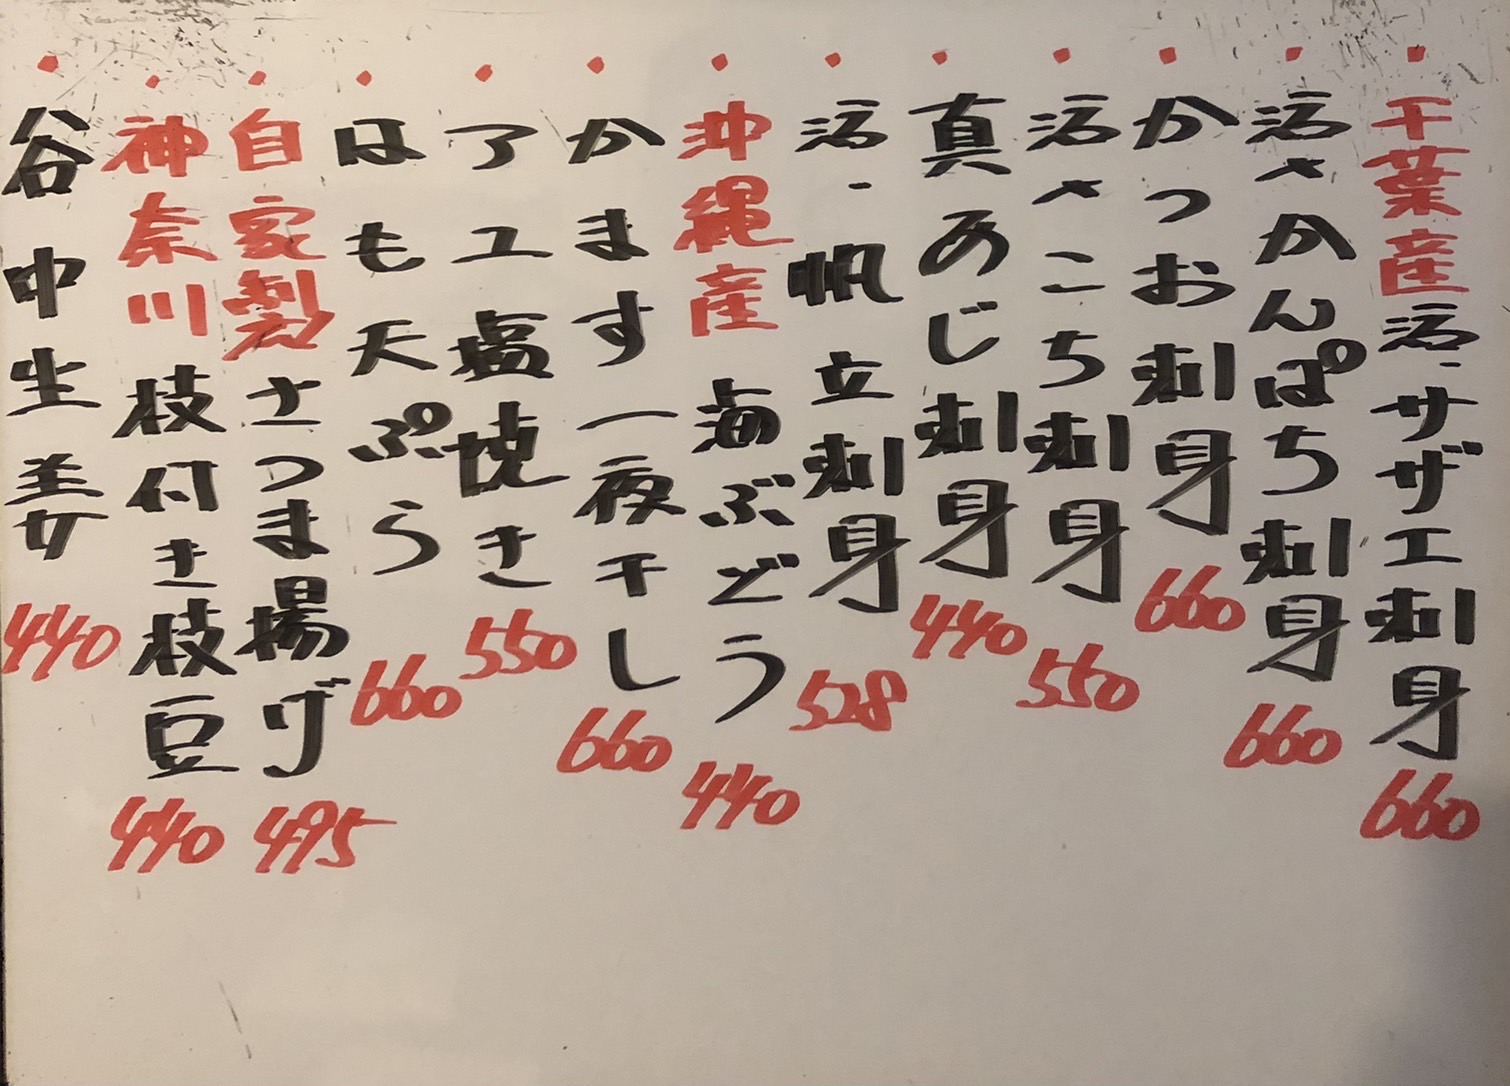 ・千葉産活・サザエ刺身 660
・活〆かんぱち刺身 660
・かつお刺身 660
・活〆こち刺身 550
・真あじ刺身 440
・活・帆立刺身 528
・沖縄産 海ぶどう 440
・かます一夜干し 660
・アユ塩焼き 550
・はも天ぷら 660
・自家製さつま揚げ 495
・神奈川 枝付き枝豆 440
・谷中生姜 440